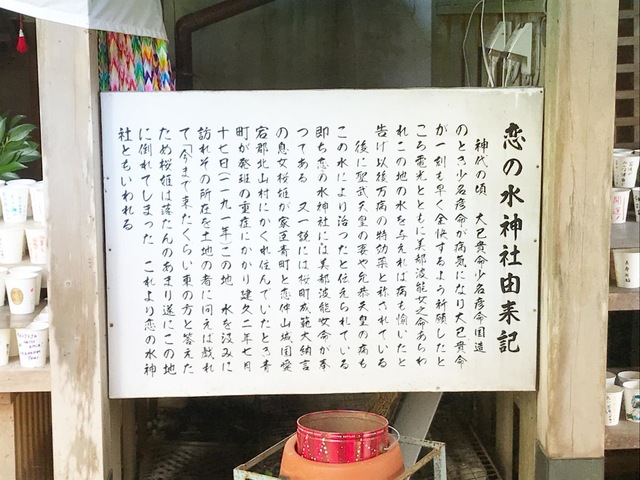 恋の水神社由来記
神代の頃　大己貴命少名彦命国造
のとき少名彦命が病気になり大己貴命
が一刻も早く全快するよう祈願したと
ころ電光とともに美都波能女之命あらわ
れこの地の水を与えれば病も愉いたと
告げ以後万病の特効薬と称されている
後に聖武天皇の妻や允恭天皇の病も
この水により治ったと伝えられている
即ち恋の水神社には美都波能女命が奉
つてある　又一説には桜町成範大納言
の息女桜姫が家臣青町と恋仲山城国愛
宕郡北山村にかくれ住んでいたとき青
町が発班の重症にかかり建久二年七月
十七日（一一九一年）この地　水を汲みに
訪れその所在を土地の者に問えば戯れ
て「今まで来たくらい東の方と答えた
ため桜姫は落たんのあまり遂にこの地
に倒れてしまった　これより恋の水神
社ともいわれる